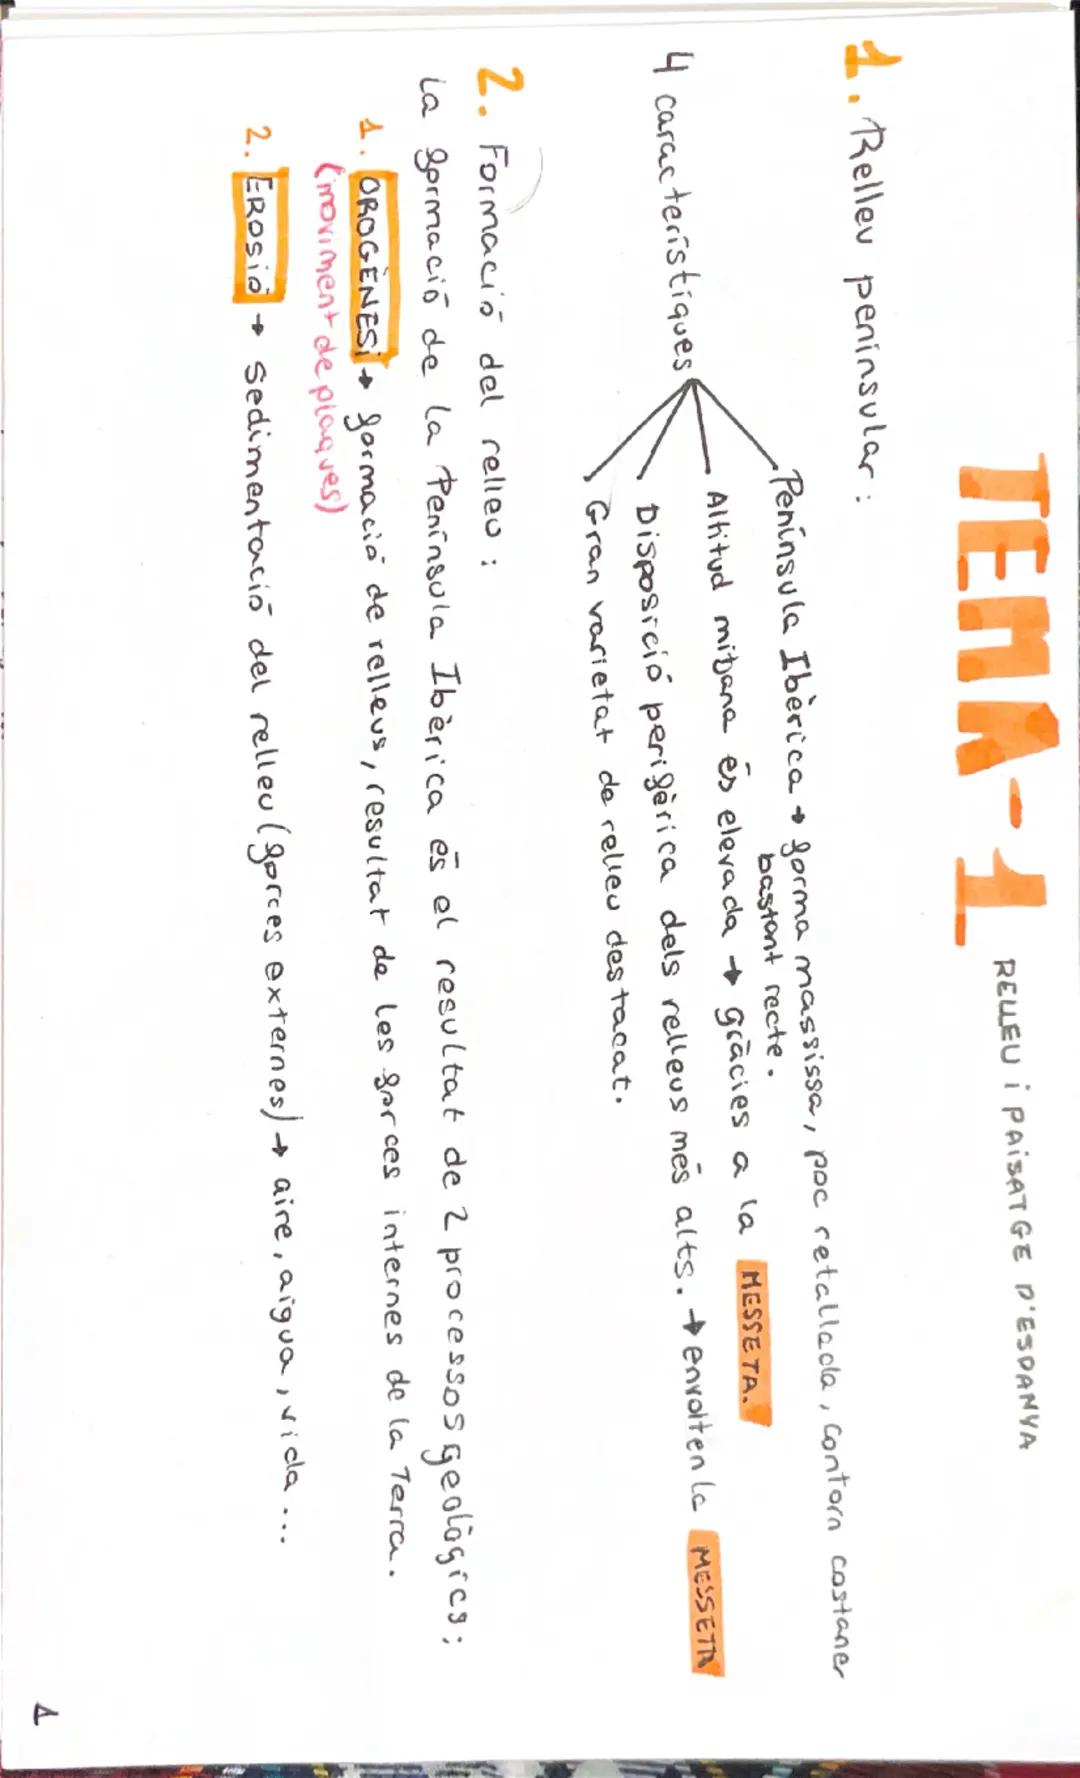 TEMA-1 RELLEU i PAiSATGE D'ESPANYA
1. Relleu peninsular:
4 característiques
Península Ibèrica → forma massissa, poc retallada, contorn costaner
bastant recte.
Altitud mitjana és elevada → gràcies a la MESSETA.
Disposició perifèrica dels relleus més alts. → envolten la MESSETA
Gran varietat de relleu destacat.
2. Formació del relleu:
La formació de la Península Ibèrica és el resultat de 2 processos geològics:
1. OROGÈNESi → formació de relleus, resultat de les forces internes de la Terra.
(moviment de plaques)
2. EROSió → sedimentació del relleu (forces externes) → aire, aigua, vida...
1